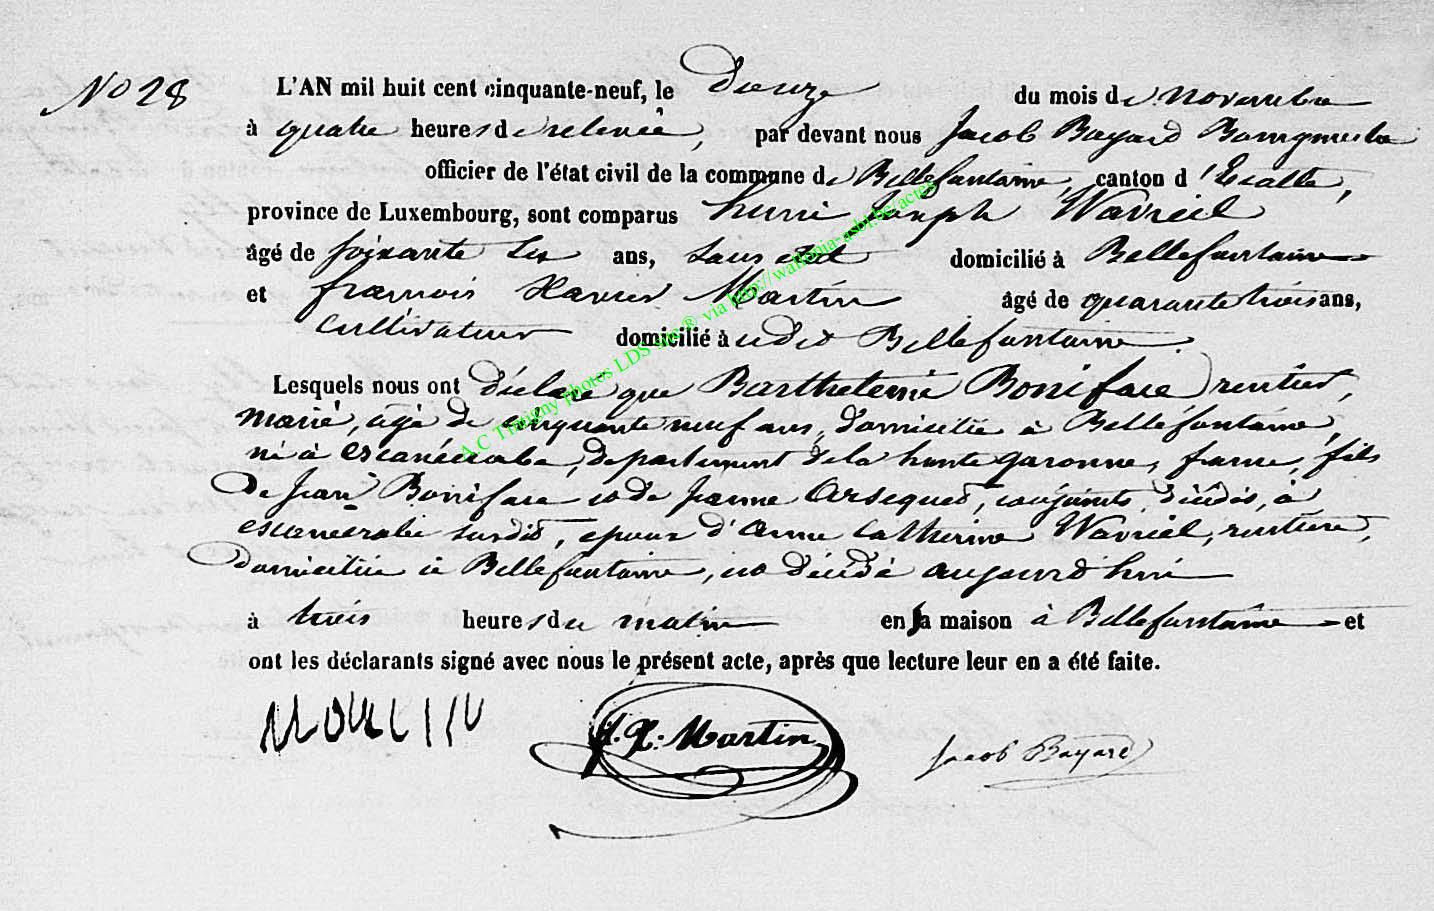 No 28
L'AN mil huit cent cinquante-neuf, le douze du mois de novembre
à quatre heures de relevée, par devant nous Jacob Bayard Bourgmestre
officier de l'état civil de la commune de Bellefontaine, canton d'Etalle,
province de Luxembourg, sont comparus henri Joseph Wavreil
âgé de soixante six ans, sans état domicilié à Bellefontaine
et françois Xavier Martin âgé de quarante trois ans,
cultivateur domicilié à udit Bellefontaine.
Lesquels nous ont déclaré que Barthelemi Boniface rentier,
marié, agé de cinquante neuf ans, domicilié à Bellefontaine,
né à escanecrabe, departement de la haute garonne, france, fils
de Jean Boniface et de Jeanne conjoints décédés, à
escanecrabe susdit, epoux d'anne Catherine Wavreil, rentiere,
domiciliée à Bellefontaine, est décédé aujourd'hui
à trois heures du matin en sa maison à Bellefontaine et
ont les déclarants signé avec nous le présent acte, après que lecture leur en a été faite.
f. X. Martin Jacob Bayard
A.C Tintigny photos LDS sur ® via http://wallonia-asbl.be/actes